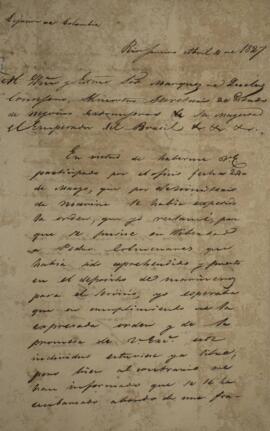 Legacion de Colombia
Rio Janeiro Abril 4 de 1827
Al Illmo y Exmo Sor Marquez de Queluz
Consejero, Ministro Secretario de Estado
de negocios extrangeros de Su Magestad
el Emperador del Brasil &. &. &.
En virtud de haberme VE
participado por oficio fecha
de Marzo, que por el Ministerio
de marina se habia expedido
la orden, que yo reclamé, para
que se pusiese en libertad
a Pedro Colmenares que
habia sido aprehendido y puesto
en el deposito de marineros
para el servicio, yo esperaba
que en cumplimiento de la
expresada orden y de la
promesa de VExa este
individuo estuviese ya libre,
pero bien al contrario me
han informado que se le ha
embarcado abordo de una fra-